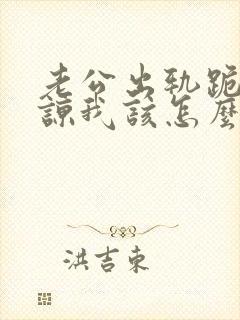 老公出轨跪
谅我该怎麼
洪吉东